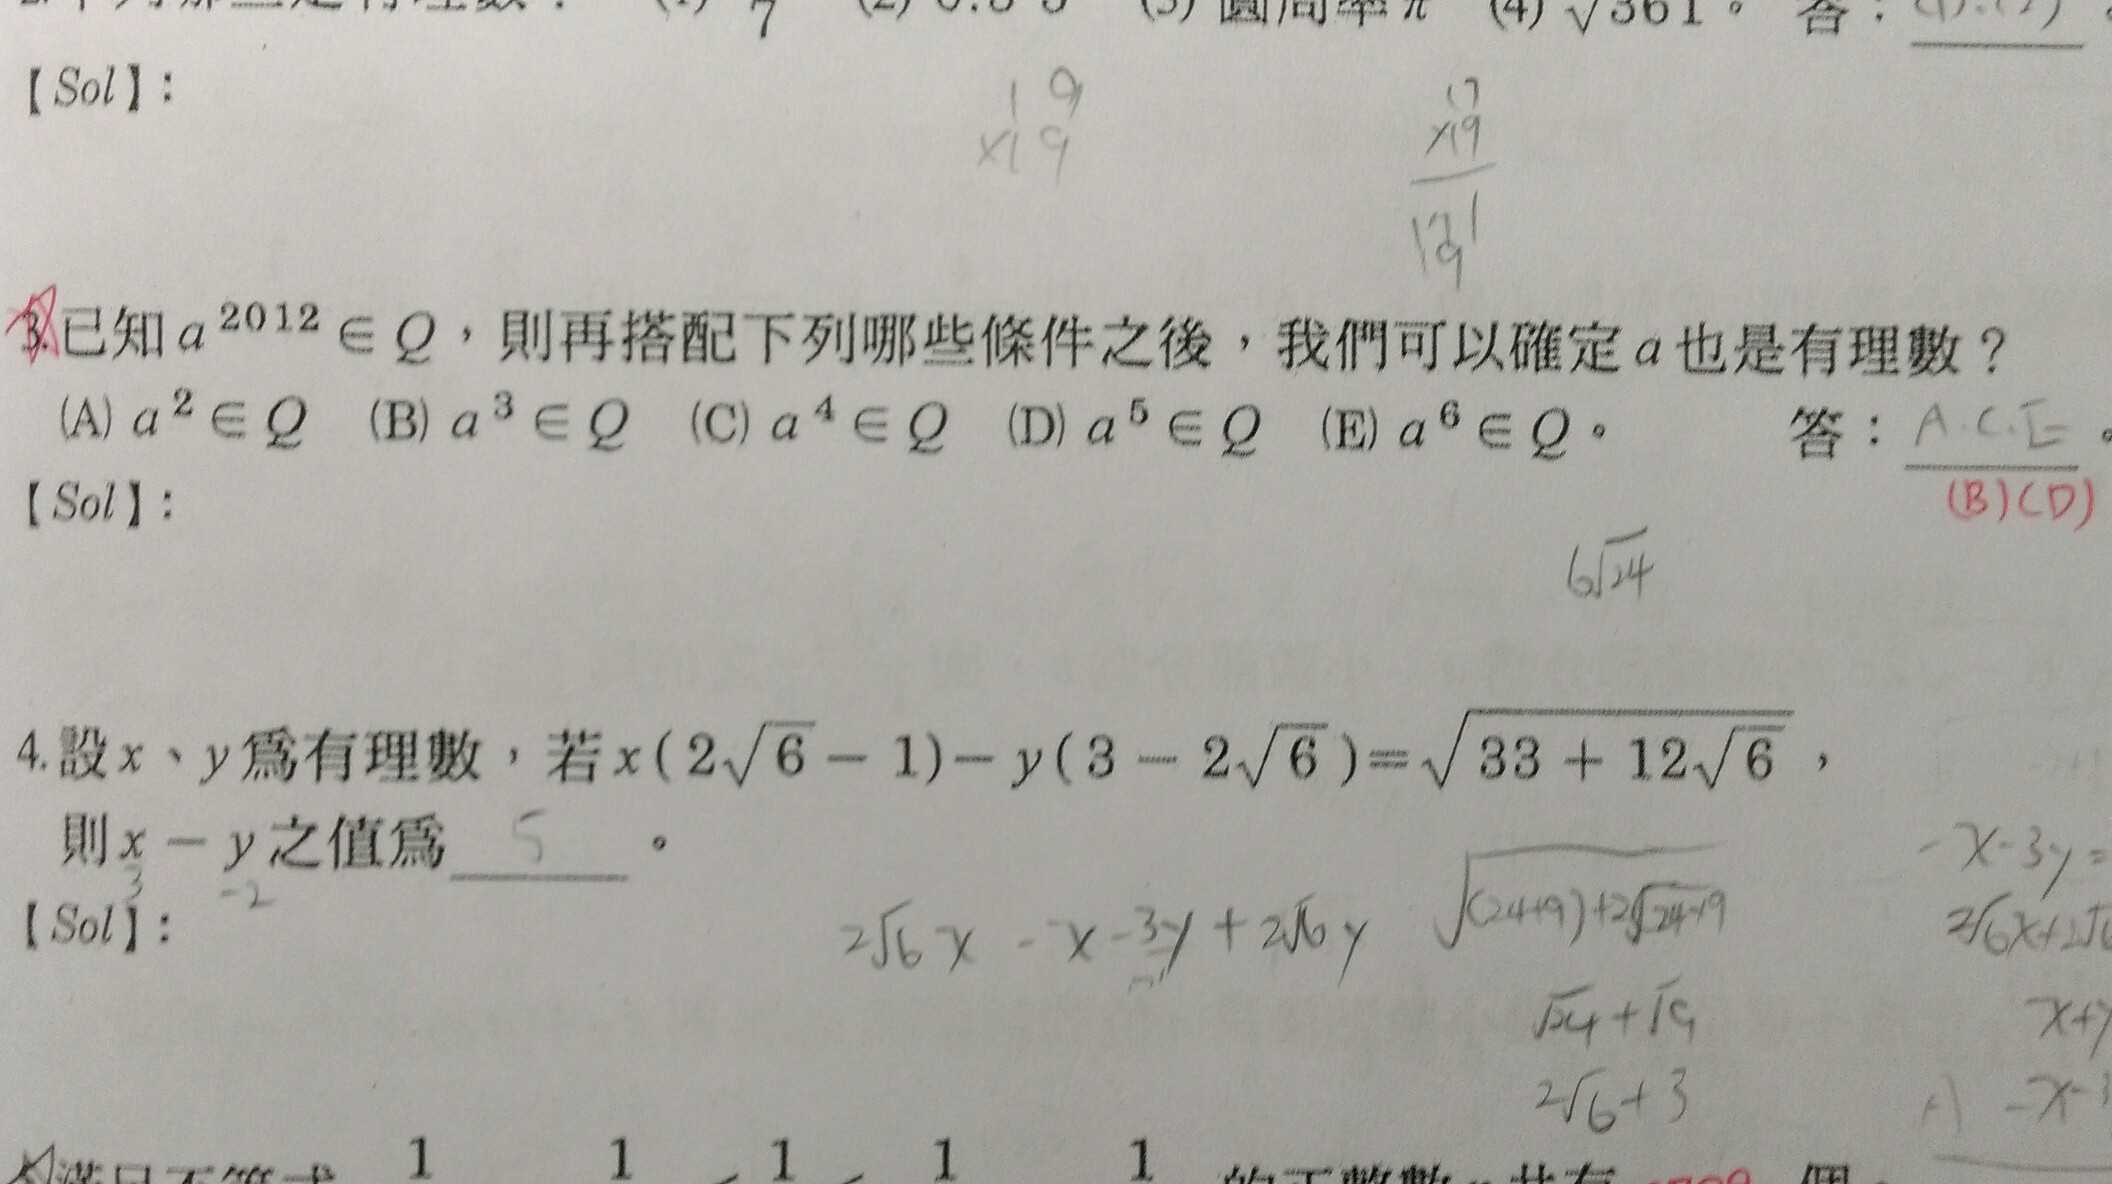 (3) 圓周率π (4) √361。 答：
【Sol】：
19
×19
19
×19
171
19
3. 已知 a²⁰¹² ∈ Q，則再搭配下列哪些條件之後，我們可以確定 a 也是有理數？
(A) a² ∈ Q (B) a³ ∈ Q (C) a⁴ ∈ Q (D) a⁵ ∈ Q (E) a⁶ ∈ Q。 答：A.C.E。
(B)(D)
【Sol】：
6√24
4. 設 x、y 爲有理數，若 x(2√6 − 1)− y(3 − 2√6)=√(33 + 12√6)，
則 x − y 之值爲 5 。
3 -2
【Sol】：
2√6x - x - 3y + 2√6y
√((24+9)+2√(24×9))
√24+√9
2√6+3
-x-3y=
2√6x+2√6
x+y
-x-3
1 1 1 1 1